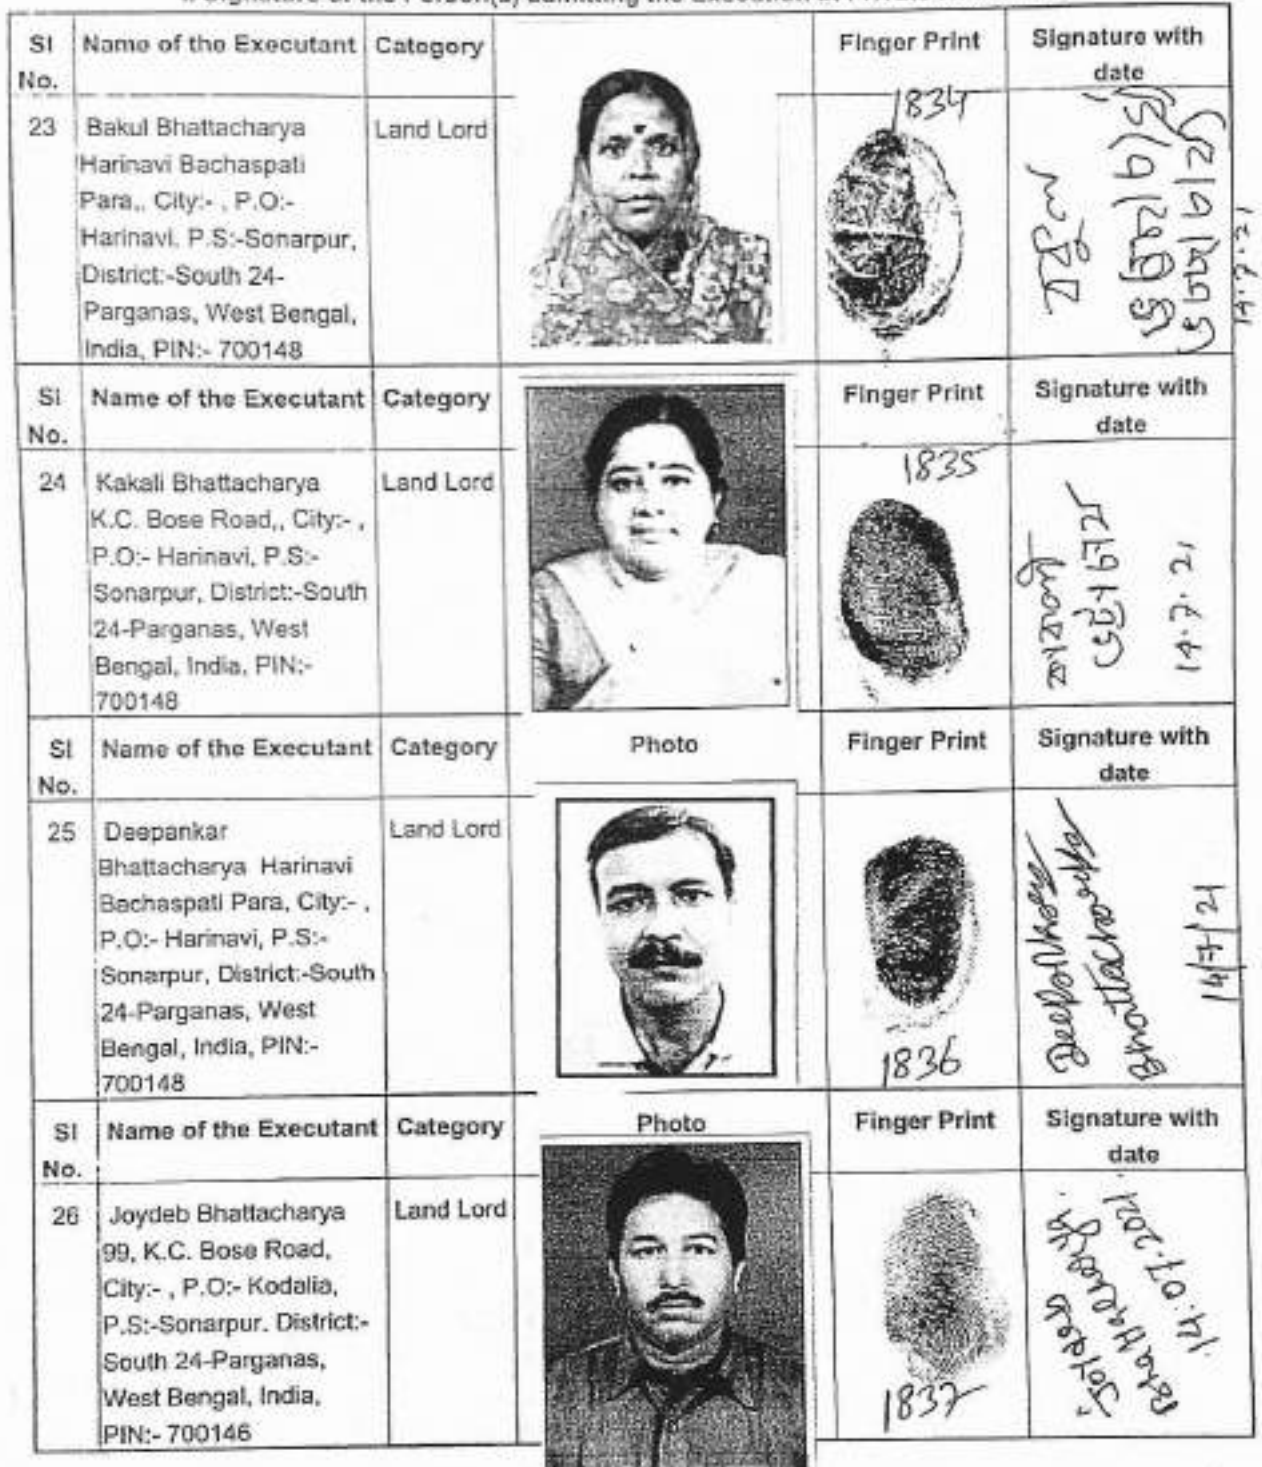 II. Signature of the Person(s) admitting the Execution at Private Residence.
Sl No. Name of the Executant Category Finger Print Signature with date
23 Bakul Bhattacharya Land Lord 1834
Harinavi Bachaspati
Para,, City:- , P.O:-
Harinavi, P.S:-Sonarpur,
District:-South 24-
Parganas, West Bengal,
India, PIN:- 700148
বকুল
14.7.21
Sl No. Name of the Executant Category Finger Print Signature with date
24 Kakali Bhattacharya Land Lord 1835
K.C. Bose Road,, City:- ,
P.O:- Harinavi, P.S:-
Sonarpur, District:-South
24-Parganas, West
Bengal, India, PIN:-
700148
কাকলী
ভট্টাচার্য
14.7.21
Sl No. Name of the Executant Category Photo Finger Print Signature with date
25 Deepankar Land Lord
Bhattacharya Harinavi
Bachaspati Para, City:- ,
P.O:- Harinavi, P.S:-
Sonarpur, District:-South
24-Parganas, West
Bengal, India, PIN:-
700148
1836
Deepankar
Bhattacharyya
14/7/21
Sl No. Name of the Executant Category Photo Finger Print Signature with date
26 Joydeb Bhattacharya Land Lord
99, K.C. Bose Road,
City:- , P.O:- Kodalia,
P.S:-Sonarpur. District:-
South 24-Parganas,
West Bengal, India,
PIN:- 700146
1837
Joydeb
Bhattacharya.
14.07.2021.